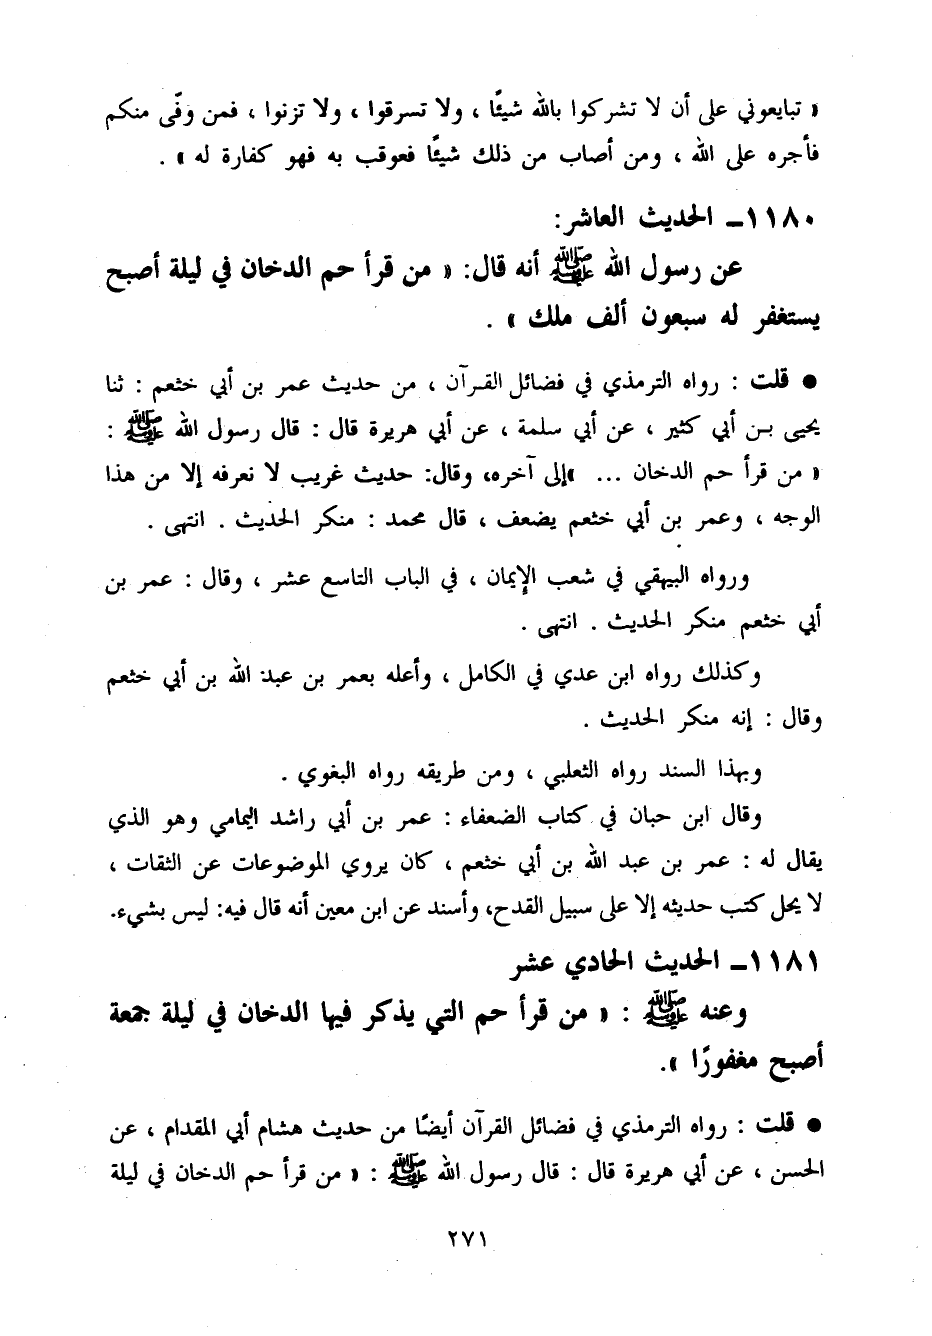 « تبايعوني على أن لا تشركوا بالله شيئًا ، ولا تسرقوا ، ولا تزنوا ، فمن وفّى منكم
فأجره على الله ، ومن أصاب من ذلك شيئًا فعوقب به فهو كفارة له » .
١١٨٠ـ الحديث العاشر:
عن رسول الله ﷺ أنه قال: « من قرأ حم الدخان في ليلة أصبح
يستغفر له سبعون ألف ملك » .
● قلت : رواه الترمذي في فضائل القرآن ، من حديث عمر بن أبي خثعم : ثنا
يحيى بن أبي كثير ، عن أبي سلمة ، عن أبي هريرة قال : قال رسول الله ﷺ :
« من قرأ حم الدخان ... »إلى آخره، وقال: حديث غريب لا نعرفه إلا من هذا
الوجه ، وعمر بن أبي خثعم يضعف ، قال محمد : منكر الحديث . انتهى .
ورواه البيهقي في شعب الإيمان ، في الباب التاسع عشر ، وقال : عمر بن
أبي خثعم منكر الحديث . انتهى .
وكذلك رواه ابن عدي في الكامل ، وأعله بعمر بن عبد الله بن أبي خثعم
وقال : إنه منكر الحديث .
وبهذا السند رواه الثعلبي ، ومن طريقه رواه البغوي .
وقال ابن حبان في كتاب الضعفاء : عمر بن أبي راشد اليمامي وهو الذي
يقال له : عمر بن عبد الله بن أبي خثعم ، كان يروي الموضوعات عن الثقات ،
لا يحل كتب حديثه إلا على سبيل القدح، وأسند عن ابن معين أنه قال فيه: ليس بشيء.
١١٨١ـ الحديث الحادي عشر
وعنه ﷺ : « من قرأ حم التي يذكر فيها الدخان في ليلة جمعة
أصبح مغفورًا ».
● قلت : رواه الترمذي في فضائل القرآن أيضًا من حديث هشام أبي المقدام ، عن
الحسن ، عن أبي هريرة قال : قال رسول الله ﷺ : « من قرأ حم الدخان في ليلة
٢٧١